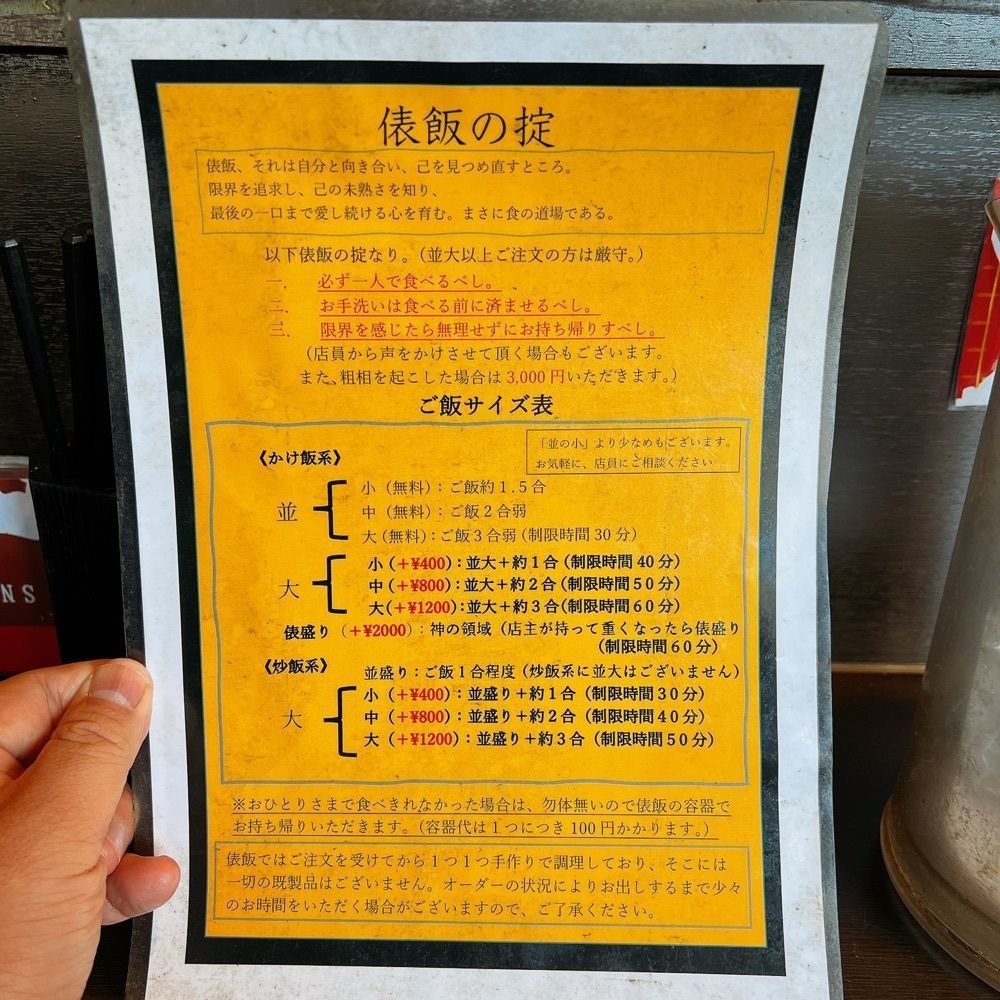 俵飯の掟
俵飯、それは自分と向き合い、己を見つめ直すところ。
限界を追求し、己の未熟さを知り、
最後の一口まで愛し続ける心を育む。まさに食の道場である。
以下俵飯の掟なり。（並大以上ご注文の方は厳守。）
一． 必ず一人で食べるべし。、
二． お手洗いは食べる前に済ませるべし。
三． 限界を感じたら無理せずにお持ち帰りすべし。
（店員から声をかけさせて頂く場合もございます。
また、粗相を起こした場合は 3,000 円いただきます。）
ご飯サイズ表
「並の小」より少なめもございます。
お気軽に、店員にご相談ください
《かけ飯系》
並
小（無料）：ご飯約１.５合
中（無料）：ご飯２合弱
大（無料）：ご飯３合弱（制限時間 30 分）
大
小（＋¥400）：並大＋約１合（制限時間 40 分）
中（＋¥800）：並大＋約２合（制限時間５０分）
大（＋¥1200）：並大＋約３合（制限時間 60 分）
俵盛り（＋¥2000）：神の領域（店主が持って重くなったら俵盛り
（制限時間６０分）
《炒飯系》
並盛り：ご飯１合程度（炒飯系に並大はございません）
大
小（＋¥400）：並盛り＋約１合（制限時間３０分）
中（＋¥800）：並盛り＋約２合（制限時間４０分）
大（＋¥1200）：並盛り＋約３合（制限時間５０分）
※おひとりさまで食べきれなかった場合は、勿体無いので俵飯の容器で
お持ち帰りいただきます。（容器代は１つにつき 100 円かかります。）
俵飯ではご注文を受けてから１つ１つ手作りで調理しており、そこには
一切の既製品はございません。オーダーの状況によりお出しするまで少々
のお時間をいただく場合がございますので、ご了承ください。
NS